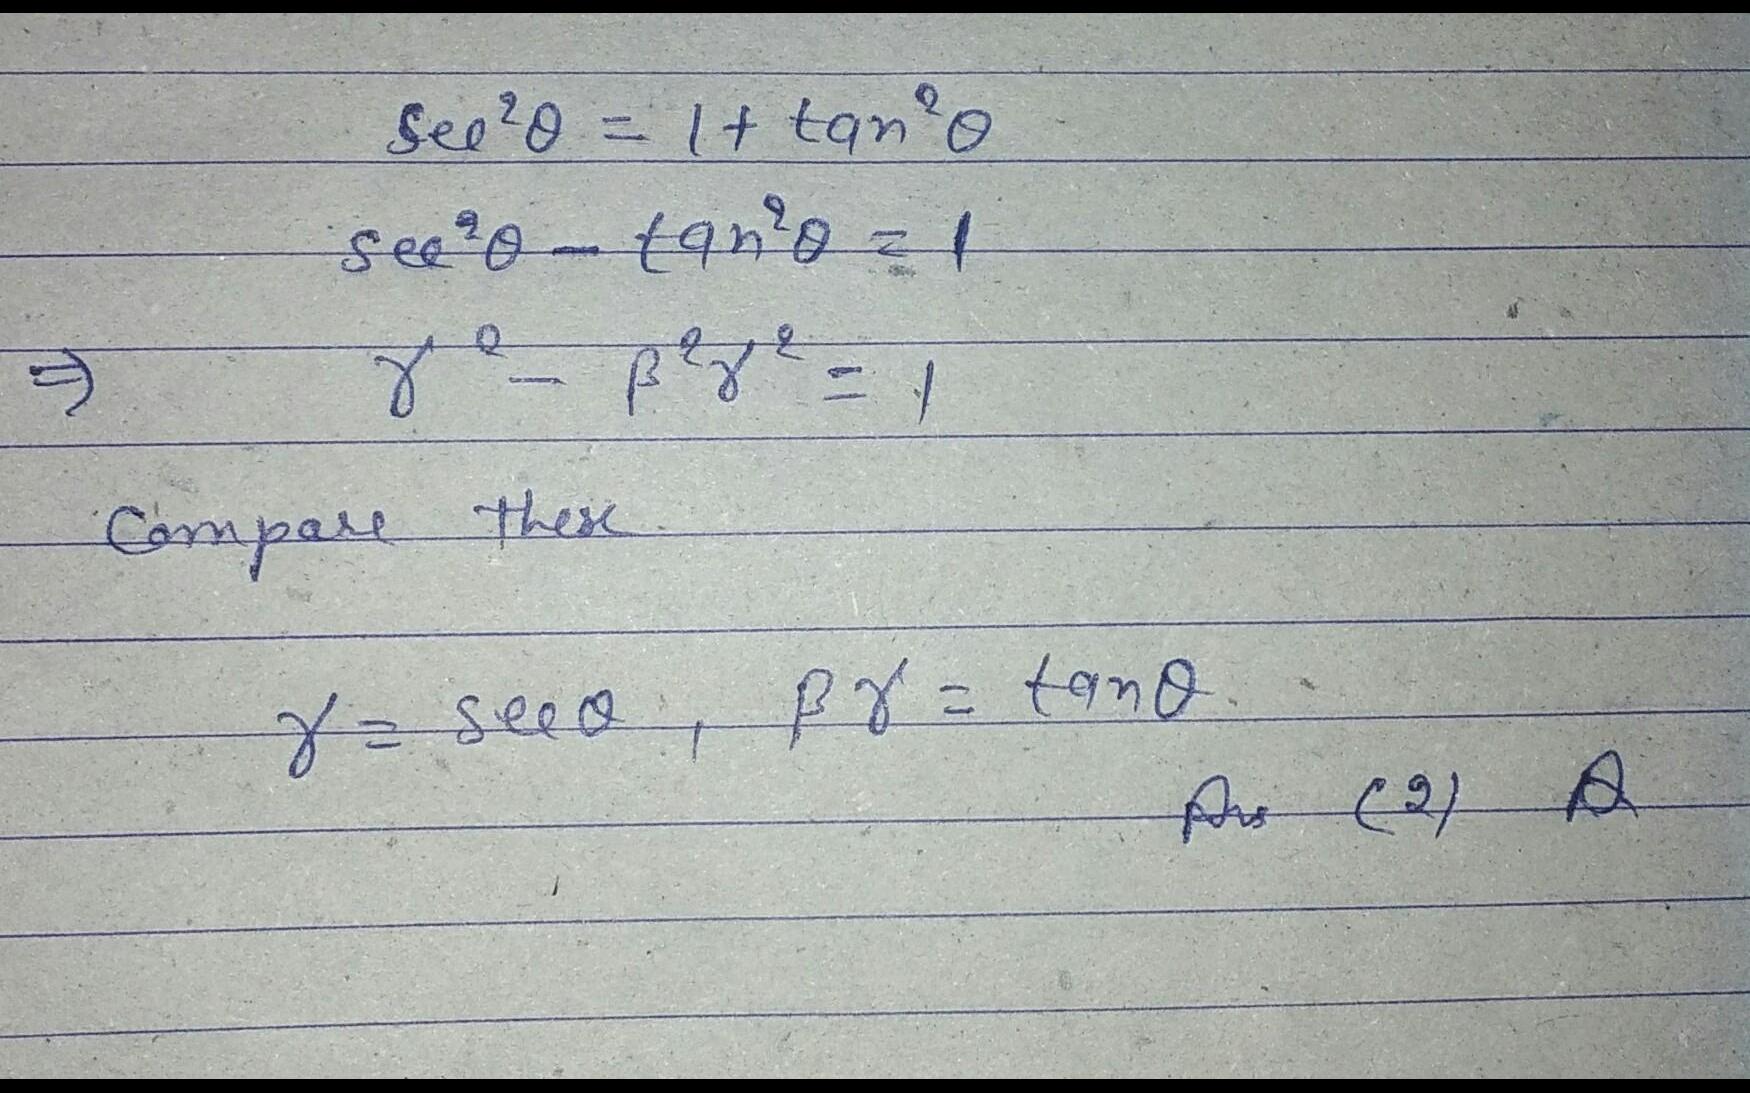 sec²θ = 1 + tan²θ
sec²θ - tan²θ = 1
⇒ γ² - β²γ² = 1
Compare these
γ = secθ, βγ = tanθ.
Ans (2) A